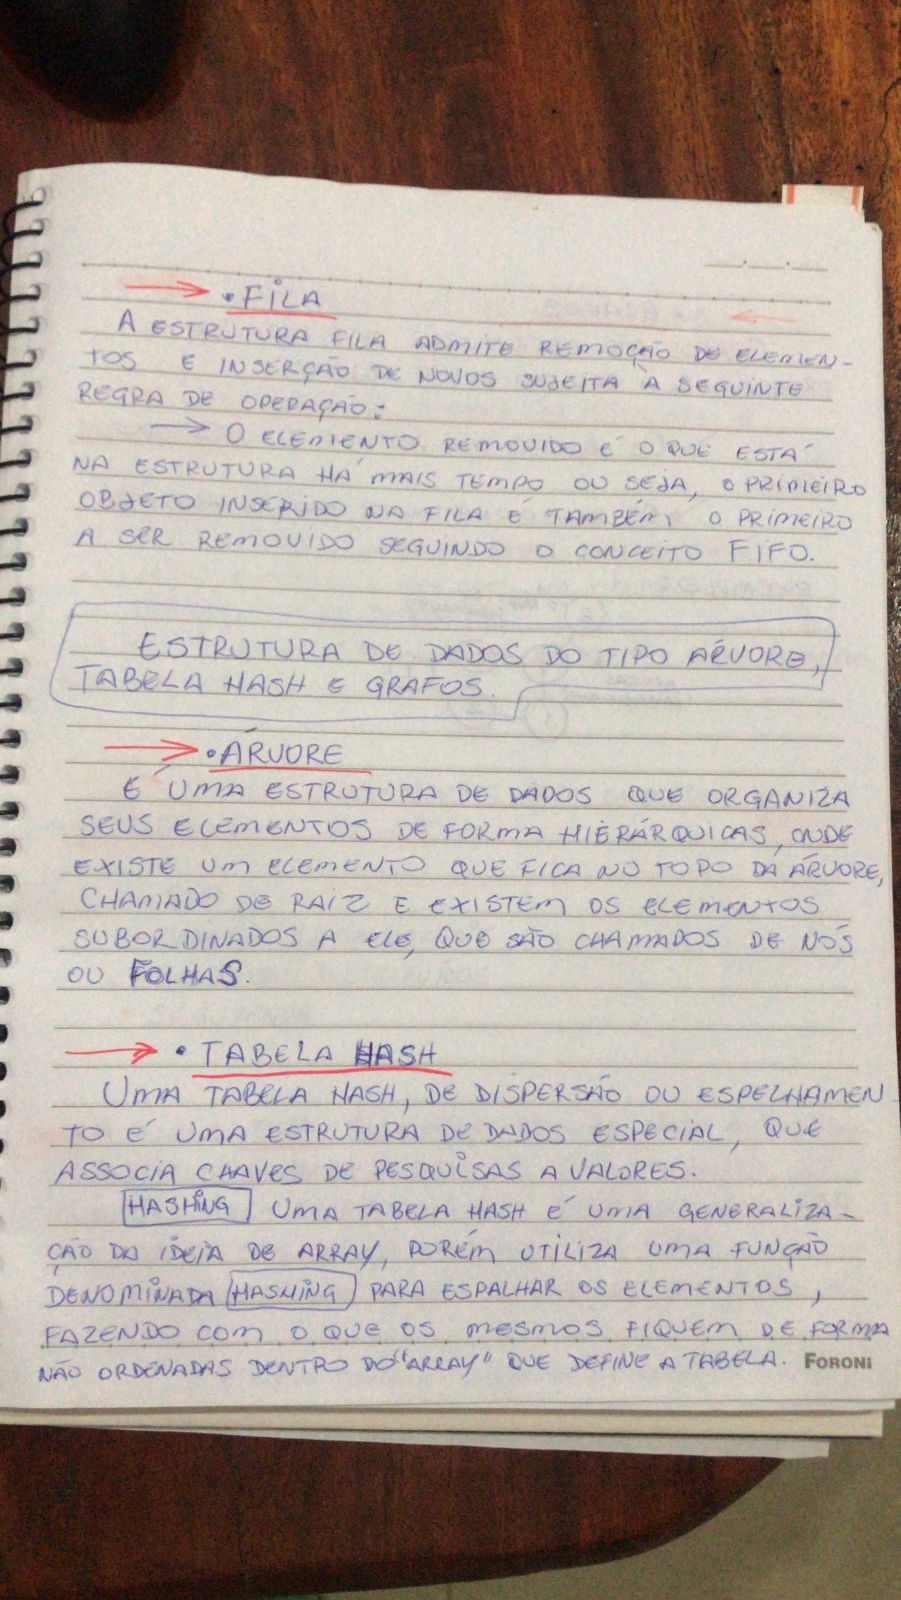 • FILA
A ESTRUTURA FILA ADMITE REMOÇÃO DE ELEMEN-
TOS E INSERÇÃO DE NOVOS SUJEITA À SEGUINTE
REGRA DE OPERAÇÃO:
→ O ELEMENTO REMOVIDO É O QUE ESTÁ
NA ESTRUTURA HÁ MAIS TEMPO OU SEJA, O PRIMEIRO
OBJETO INSERIDO NA FILA É TAMBÉM O PRIMEIRO
A SER REMOVIDO SEGUINDO O CONCEITO FIFO.
ESTRUTURA DE DADOS DO TIPO ÁRVORE,
TABELA HASH E GRAFOS.
• ÁRVORE
É UMA ESTRUTURA DE DADOS QUE ORGANIZA
SEUS ELEMENTOS DE FORMA HIERÁRQUICAS, ONDE
EXISTE UM ELEMENTO QUE FICA NO TOPO DA ÁRVORE,
CHAMADO DE RAIZ E EXISTEM OS ELEMENTOS
SUBORDINADOS A ELE, QUE SÃO CHAMADOS DE NÓS
OU FOLHAS.
• TABELA HASH
UMA TABELA HASH, DE DISPERSÃO OU ESPELHAMEN
TO É UMA ESTRUTURA DE DADOS ESPECIAL, QUE
ASSOCIA CHAVES DE PESQUISAS A VALORES.
HASHING UMA TABELA HASH É UMA GENERALIZA-
ÇÃO DA IDEIA DE ARRAY, PORÉM UTILIZA UMA FUNÇÃO
DENOMINADA HASHING PARA ESPALHAR OS ELEMENTOS,
FAZENDO COM O QUE OS MESMOS FIQUEM DE FORMA
NÃO ORDENADAS DENTRO DO "ARRAY" QUE DEFINE A TABELA. FORONI